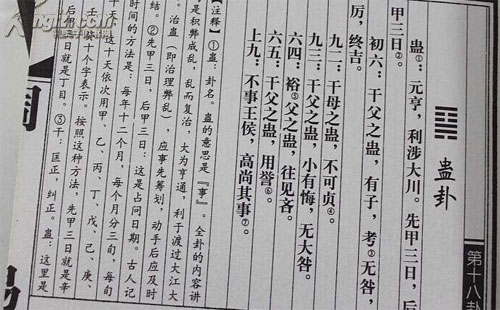 第十八卦
蛊卦
蛊①：元亨，利涉大川。先甲三日，后
甲三日②。
初六：干父之蛊，有子，考③无咎，
厉，终吉。
九二：干母之蛊，不可贞④。
九三：干父之蛊，小有悔，无大咎。
六四：裕⑤父之蛊，往见吝。
六五：干父之蛊，用誉⑥。
上九：不事王侯，高尚其事⑦。
【注释】①蛊：卦名。蛊的意思是『事』。全卦的内容讲
是积弊成乱，乱而复治，大为亨通，利于渡过大江大
。治蛊（即治理弊乱），应事先筹划，动手后应及时
结。②先甲三日，后甲三日：这是占问日期。古人记
时间的方法是：每年十二个月，每个月分三旬，每旬
十天，这十天依次用甲、乙、丙、丁、戊、己、庚、
壬、癸十个字表示。按照这种方法，先甲三日就是辛
就是丁日。③干：匡正，纠正。蛊：这里是
周易